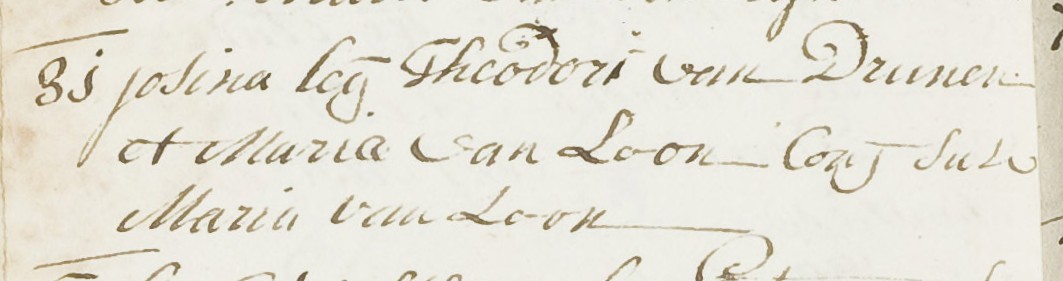 31 josina leg Theodori van Drunen
et Maria van Loon Conj Sus
Maria van Loon